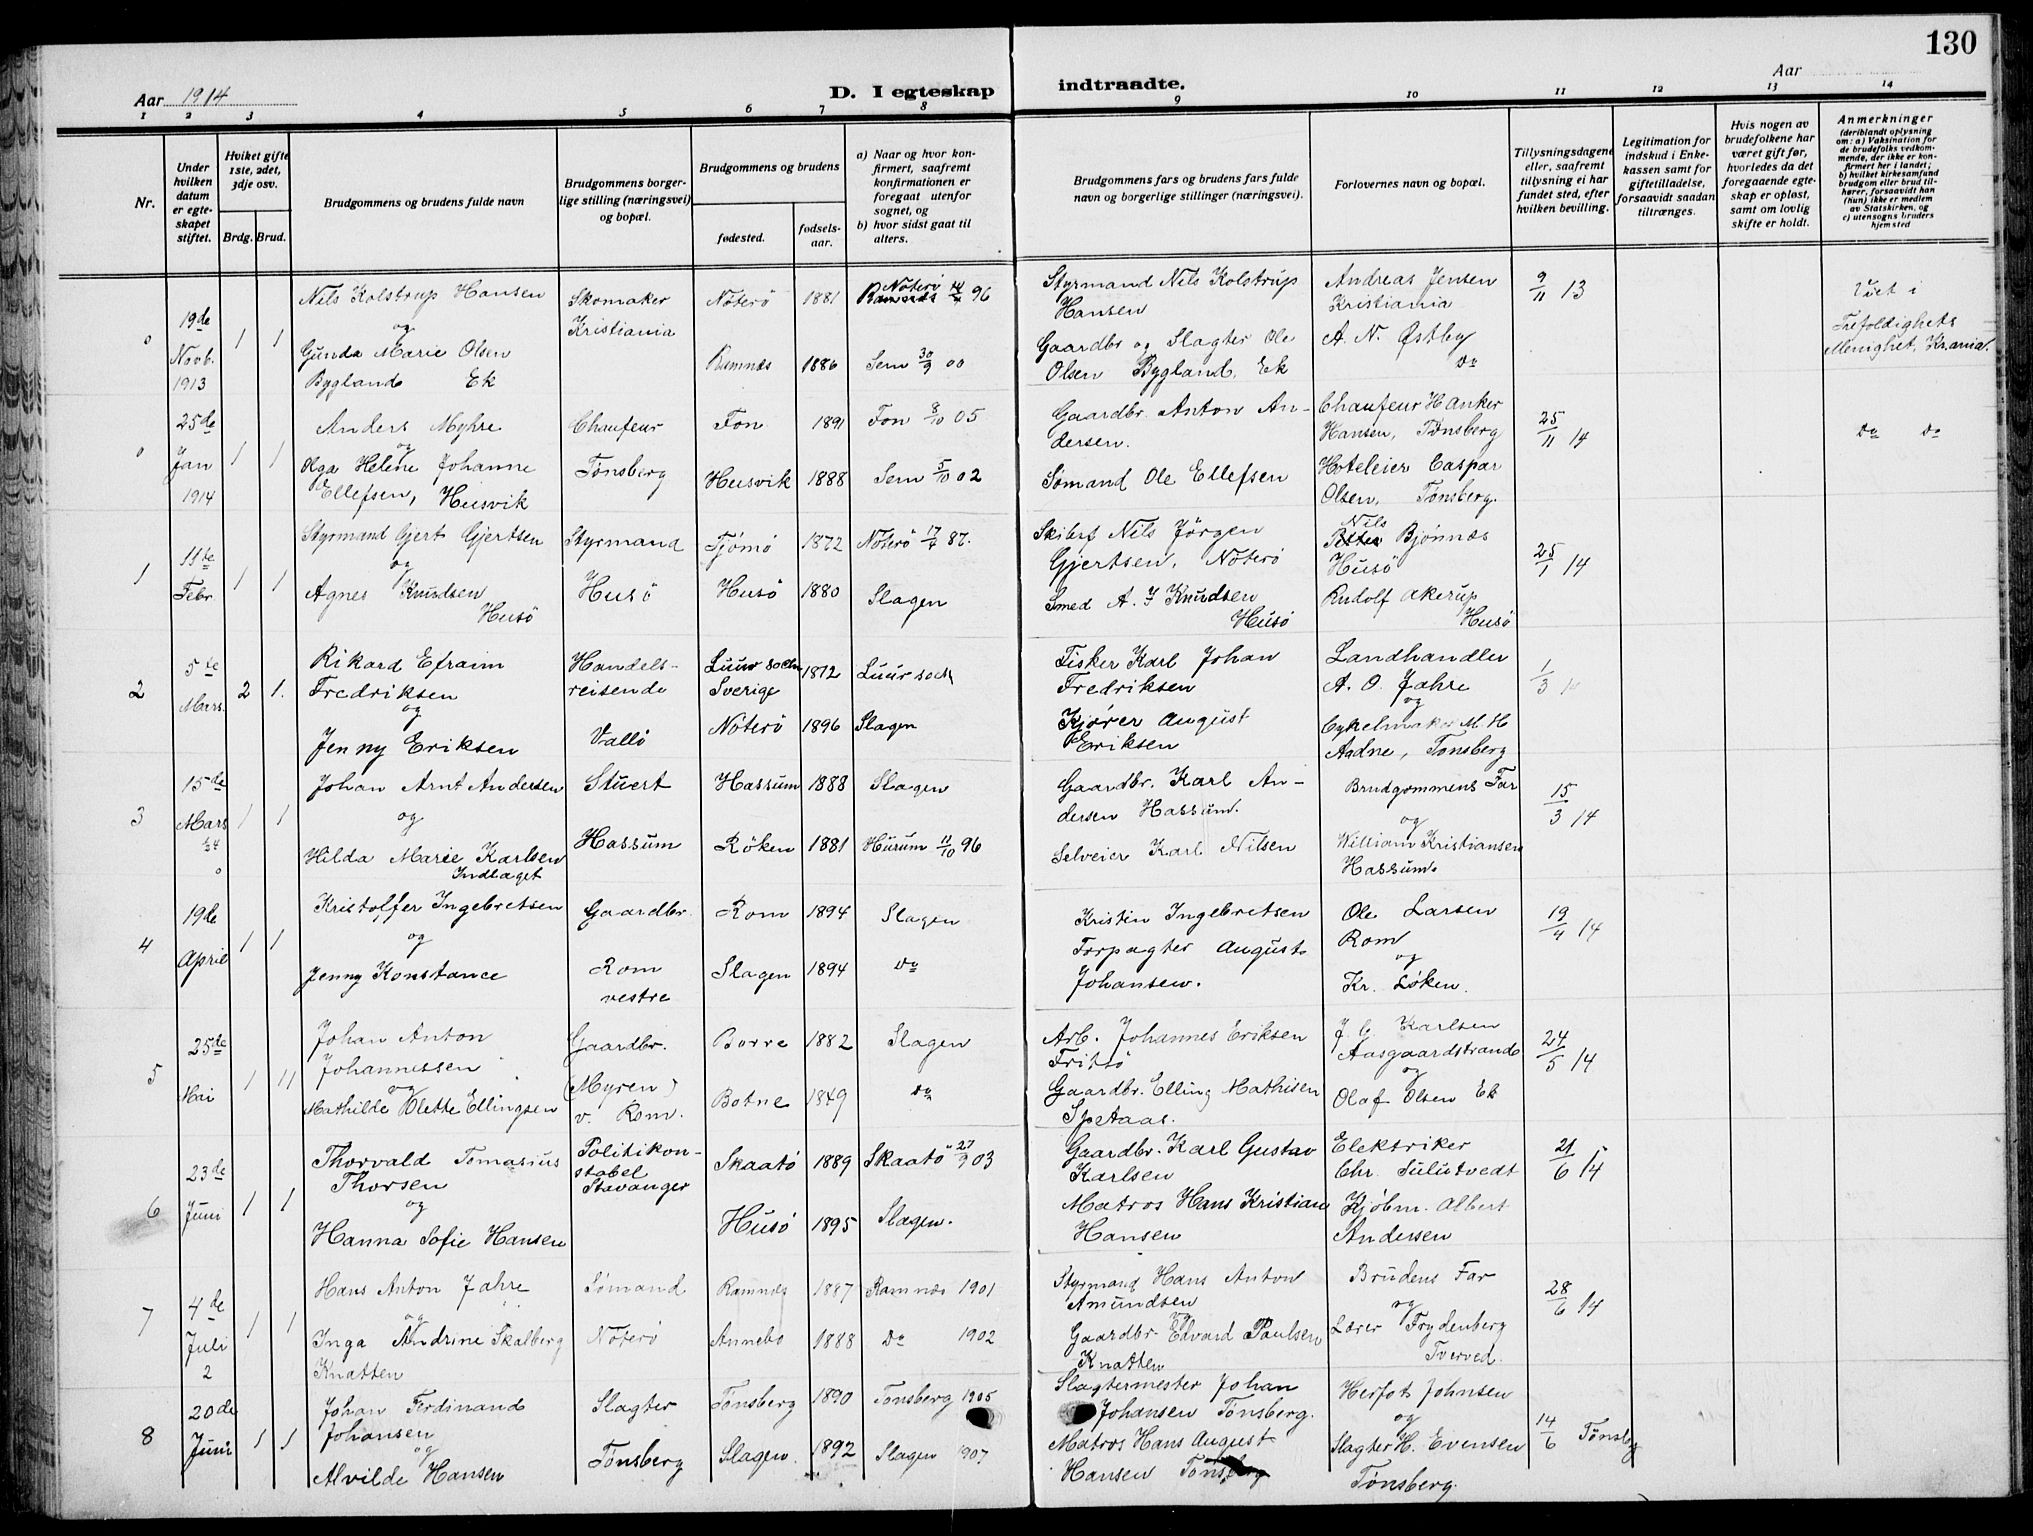 130
Aar 1914
D. I egteskap
indtraadte.
Aar
1 2 3 4 5 6 7 8 9 10 11 12 13 14
Nr.
Under hvilken datum er egteskapet stiftet.
Hvilket gifte 1ste, 2det, 3dje osv.
Brdg. Brud.
Brudgommens og brudens fulde navn
Brudgommens borgerlige stilling (næringsvei) og bopæl.
Brudgommens og brudens
fødested.
fødselsaar.
a) Naar og hvor konfirmert, saafremt konfirmationen er foregaat utenfor sognet, og
b) hvor sidst gaat til alters.
Brudgommens fars og brudens fars fulde navn og borgerlige stillinger (næringsvei).
Forlovernes navn og bopæl.
Tillysningsdagene eller, saafremt tillysning ei har fundet sted, efter hvilken bevilling.
Legitimation for indskud i Enkekassen samt for giftetilladelse, forsaavidt saadan tiltrænges.
Hvis nogen av brudefolkene har været gift før, hvorledes da det foregaaende egteskap er opløst, samt om lovlig skifte er holdt.
Anmerkninger
(deriblandt oplysning om: a) Vaksination for de brudefolks vedkommende, der ikke er konfirmert her i landet; b) hvilket kirkesamfund brudgom eller brud tilhører, forsaavidt han (hun) ikke er medlem av Statskirken, og c) utensogns bruders hjemsted
0 19de Novb. 1913 1 1
Nils Kolstrup Hansen
og
Gunda Marie Olsen
Bygland Ek
Skomaker
Kristiania
Nøterø 1881 Nøterø 96
Ramnes 1886 Sem 30/9 00
Styrmand Nils Kolstrup
Hansen
Gaardbr og Slagter Ole
Olsen Bygland, Ek
Andreas Jensen
Kristiania
A. N. Østby
Do
9/11 13
Viet i
Trefoldigheds
Menighet, Kr.ania.
0 25de Jan 1914 1 1
Anders Myhre
og
Olga Helene Johanne
Ellefsen, Husvik
Chaufeur
Tønsberg
Fon 1891 Fon 8/10 05
Husvik 1888 Sem 5/10 02
Gaardbr. Anton An-
dersen.
Sømand Ole Ellefsen
Chaufeur Hanker
Hansen, Tønsberg
Hoteleier Caspar
Olsen, Tønsberg.
25/11 14
Do Do
1 11te Febr 1 1
Styrmand Gjert Gjertsen
og
Agnes Knudsen
Husö
Styrmand
Husö
Tjømø 1872 Nøterø 87.
Husö 1880 Slagen
Skibsf Nils Jörgen
Gjertsen, Nøterø
Smed A. J Knudsen
Husö
Nils
Petter Bjönnes
Husö
Rudolf Akerup
Husö
25/1 14
2 5te Mars. 2 1.
Rikard Efraim
Fredriksen
og
Jenny Eriksen
Handels-
reisende
Vallö
Luur socken
Sverige 1872 Luur sock
Nøterø 1896 Slagen
Fisker Karl Johan
Fredriksen
Kjører August
Eriksen
Landhandler
A. O. Jahre
og
Cykelmaker M. H
Aadne, Tønsberg
1/3 14
3 15de Mars 1 1
Johan Arnt Andersen
og
Hilda Marie Karlsen
Indlaget
Stuert
Hassum
Hassum 1888 Slagen
Røken 1881 Hurum 11/10 96
Gaardbr. Karl An-
dersen Hassum.
Selveier Karl Nilsen
Brudgommens Far
og
William Kristiansen
Hassum.
15/3 14
4 19de April 1 1
Kristoffer Ingebretsen
og
Jenny Konstance
Gaardbr.
Rom
vestre
Rom 1894 Slagen
Slagen 1894 Do
Kristin Ingebretsen
Forpagter August
Johansen.
Ole Larsen
Rom
og
Kr. Løken.
19/4 14
5 25de Mai 1 11
Johan Anton
Johannessen
og
Mathilde Olette Ellingsen
Gaardbr.
(Myren)
v. Rom.
Borre 1882 Slagen
Botne 1849 Do
Arb. Johannes Eriksen
Fritsö
Gaardbr. Elling Mathisen
J. C. Karlsen
Aasgaardstrand
og
Olaf Olsen Ek
24/5 14
6 23de Juni 1 1
Thorvald Tomasius
Thorsen
og
Hanna Sofie Hansen
Politikon-
stabel
Stavanger
Skaatö 1889 Skaatö 27/9 03
Husö 1895 Slagen.
Gaardbr. Karl Gustav
Karlsen
Matros Hans Kristian
Hansen
Elektriker
Chr. Sulutvedt
Kjöbm. Albert
Andersen
21/6 14
7 4de Juli 2 1 1
Hans Anton Jahre
og
Inga Andrine Skalberg
Knatten
Sømand
Nøterø
Ramnes 1887 Ramnes 1901
Annebo 1888 Do 1902
Styrmand Hans Anton
Amundsen
og
Gaardbr. Edvard Paulsen
Knatten
Brudens Far
og
Lærer Frydenberg
Tverved.
28/6 14
8 20de Juni 1 1
Johan Ferdinand
Johansen
og
Alvilde Hansen
Slagter
Tønsberg
Tønsberg 1890 Tønsberg 1905
Slagen. 1892 Slagen 1907
Slagtermester Johan
Johansen Tønsberg.
Matros Hans August
Hansen Tønsberg
Johnsen
og
Slagter H. Evensen
Tønsberg.
14/6 Tønsbg